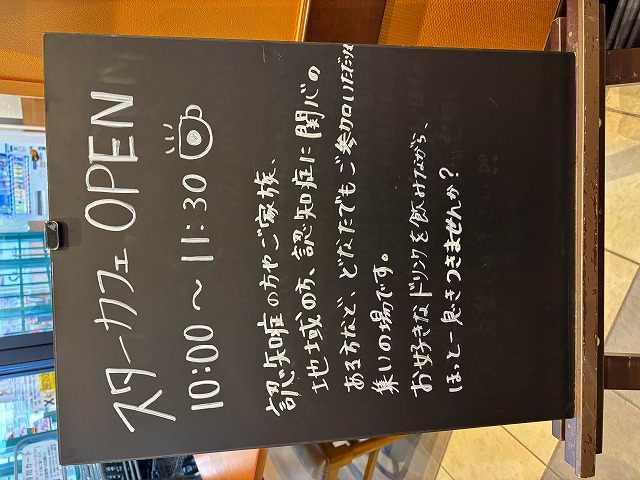 スターカフェ OPEN
10:00〜11:30
認知症の方やご家族、
地域の方、認知症に関心の
ある方など、どなたでもご参加いただける
集いの場です。
お好きなドリンクを飲みながら、
ほっと一息つきませんか?